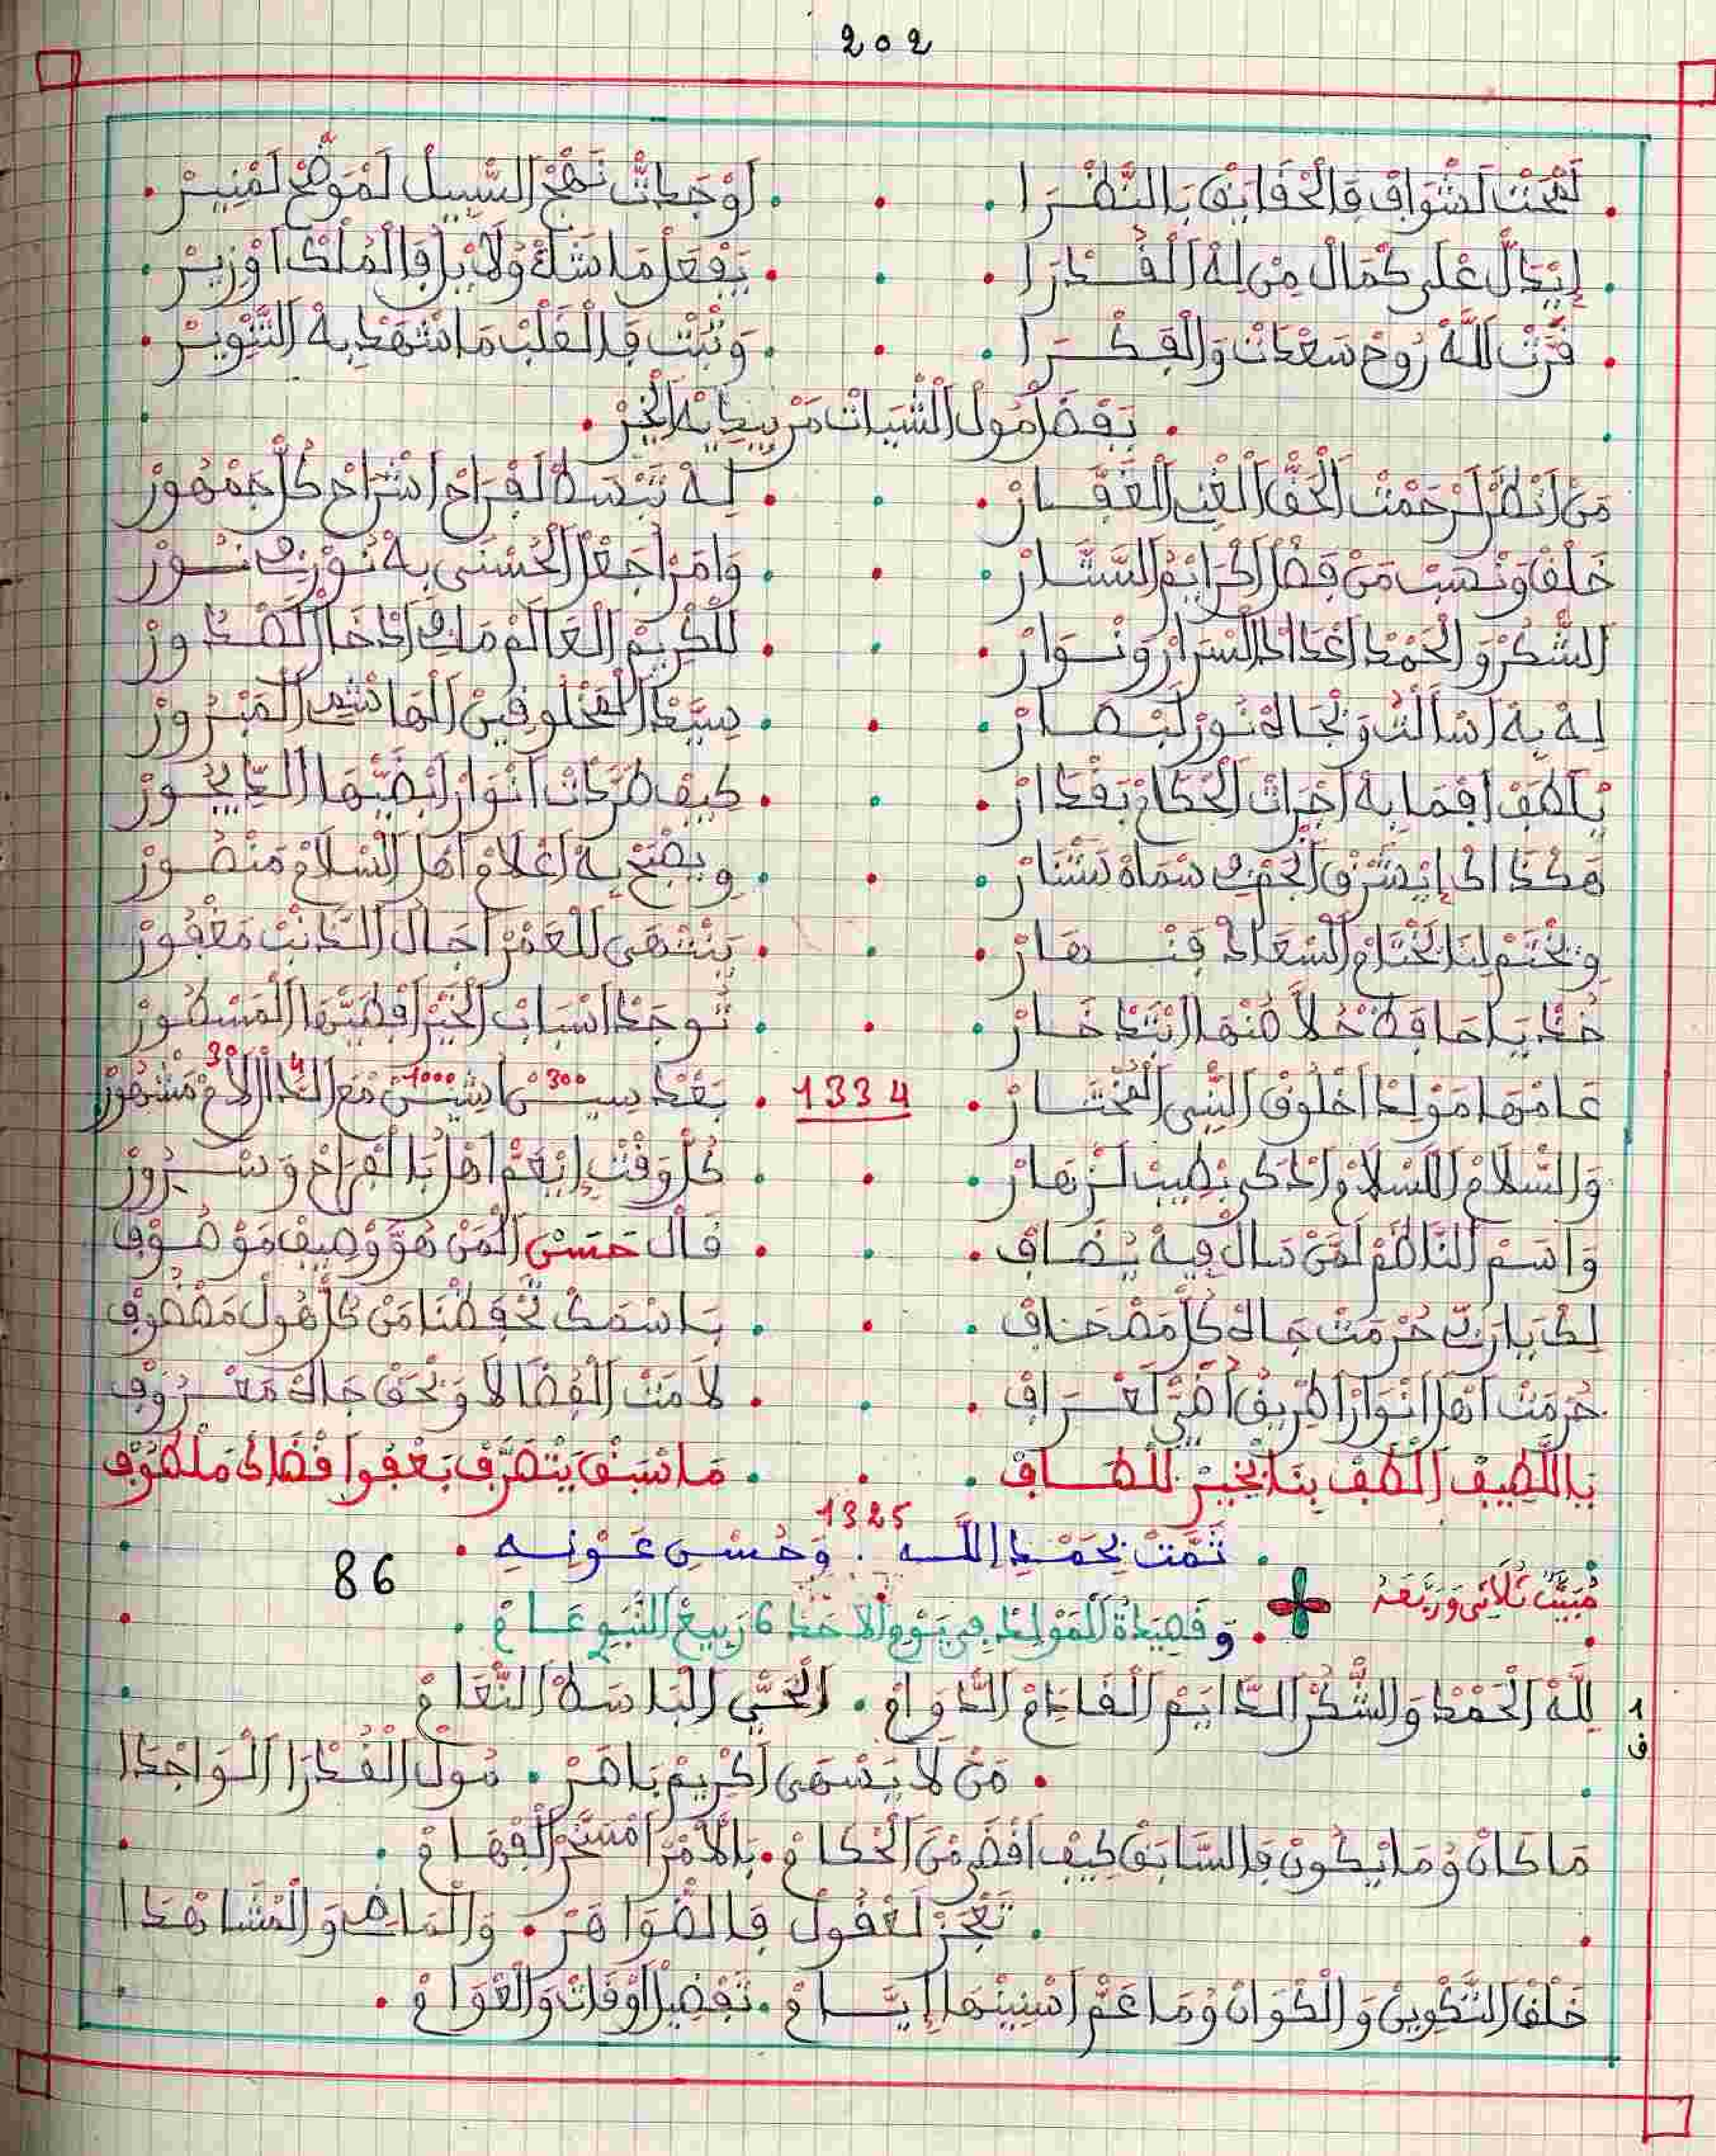 202
لحت لشواق فالحقايق بالنظرا . . . اوجدات نهج السبيل لموضح لمنير
ايدل على كمال من له القدرا . . . يفعل ما شاء ولا يلو فالملك اوزير
قرت الله روح سعدات والفكرا . . . وثبت فالقلب ما شهد به التنوير
بفضل مول الثبات من بيديه الخير
من انظر لرحمت الحق الغني الغفار . . . له تبسط لفراح اشراح كل جمهور
خلق ونصب من فضل الكرايم الستار . . . وامر اجعل الحسنى به نورك نور
الشكر والحمد اعداد السرار ونوار . . . للكريم العالم ماك ادخال الصدور
له به اسالت وبجاه نور لبصار . . . سيد المخلوقين الهاشمي المبرور
يلطف افما به اجرات الحكام بقدار . . . كيف طردات انوار ابضيها الديجور
هكذا اد ايشرق الحق سماه ستار . . . ويصبح به اعلام اهل السلام منصور
ويختم لنا بختام السعاد فنهار . . . ينتهى للعمر اجال الذنب مغفور
خذ يا حافظ حلا منها اتدخار . . . توجد اسباب الخير افطيها المسطور
عامها مولد اخلوق النبي المختار . 1334 . بعد سين اشين مع الدال الام مشهور
300 1000 4 30
والسلام للسلام اذكى بطيب لزهار . . . كل وقت ايعم اهل بالفراح وسرور
واسم الناظم لمن سال فيه يضاف . . . قال حسن المن هو وصيف موصوف
لك يا رب حرمت جاه كل مصحاف . . . باسمك تحفظنا من كل هول مقضوف
حرمت اهل انوار اطريق اضي لعراف . . . لا مت القضا لا ونحق جاه معروف
باللطيف الطف بنا بخير للطاف . . . ما سبق يتصرف بعفوا فضاد ملطوف
1325
تمت بحمد الله . وحسن عونه
86
مبيت ثلاثي وربعه
وقصيدة المولد في يوم الاحد 6 ربيع النبوي عام
1 ف
لله الحمد والشكر الدايم القادم الدوام . الحي الباسط النعام
من لا يسهى اكريم باهر . مول القدرا الواجدا
ما كان وما يكون فالسابق كيف اقضى من الحكام . بالامر امسخر الفهام
تعجز لعقول فالضواهر . والماضي والمشاهدا
خلق التكوين والكوان وما عم اسنينها ايام . تفضيل اوقات والعوام